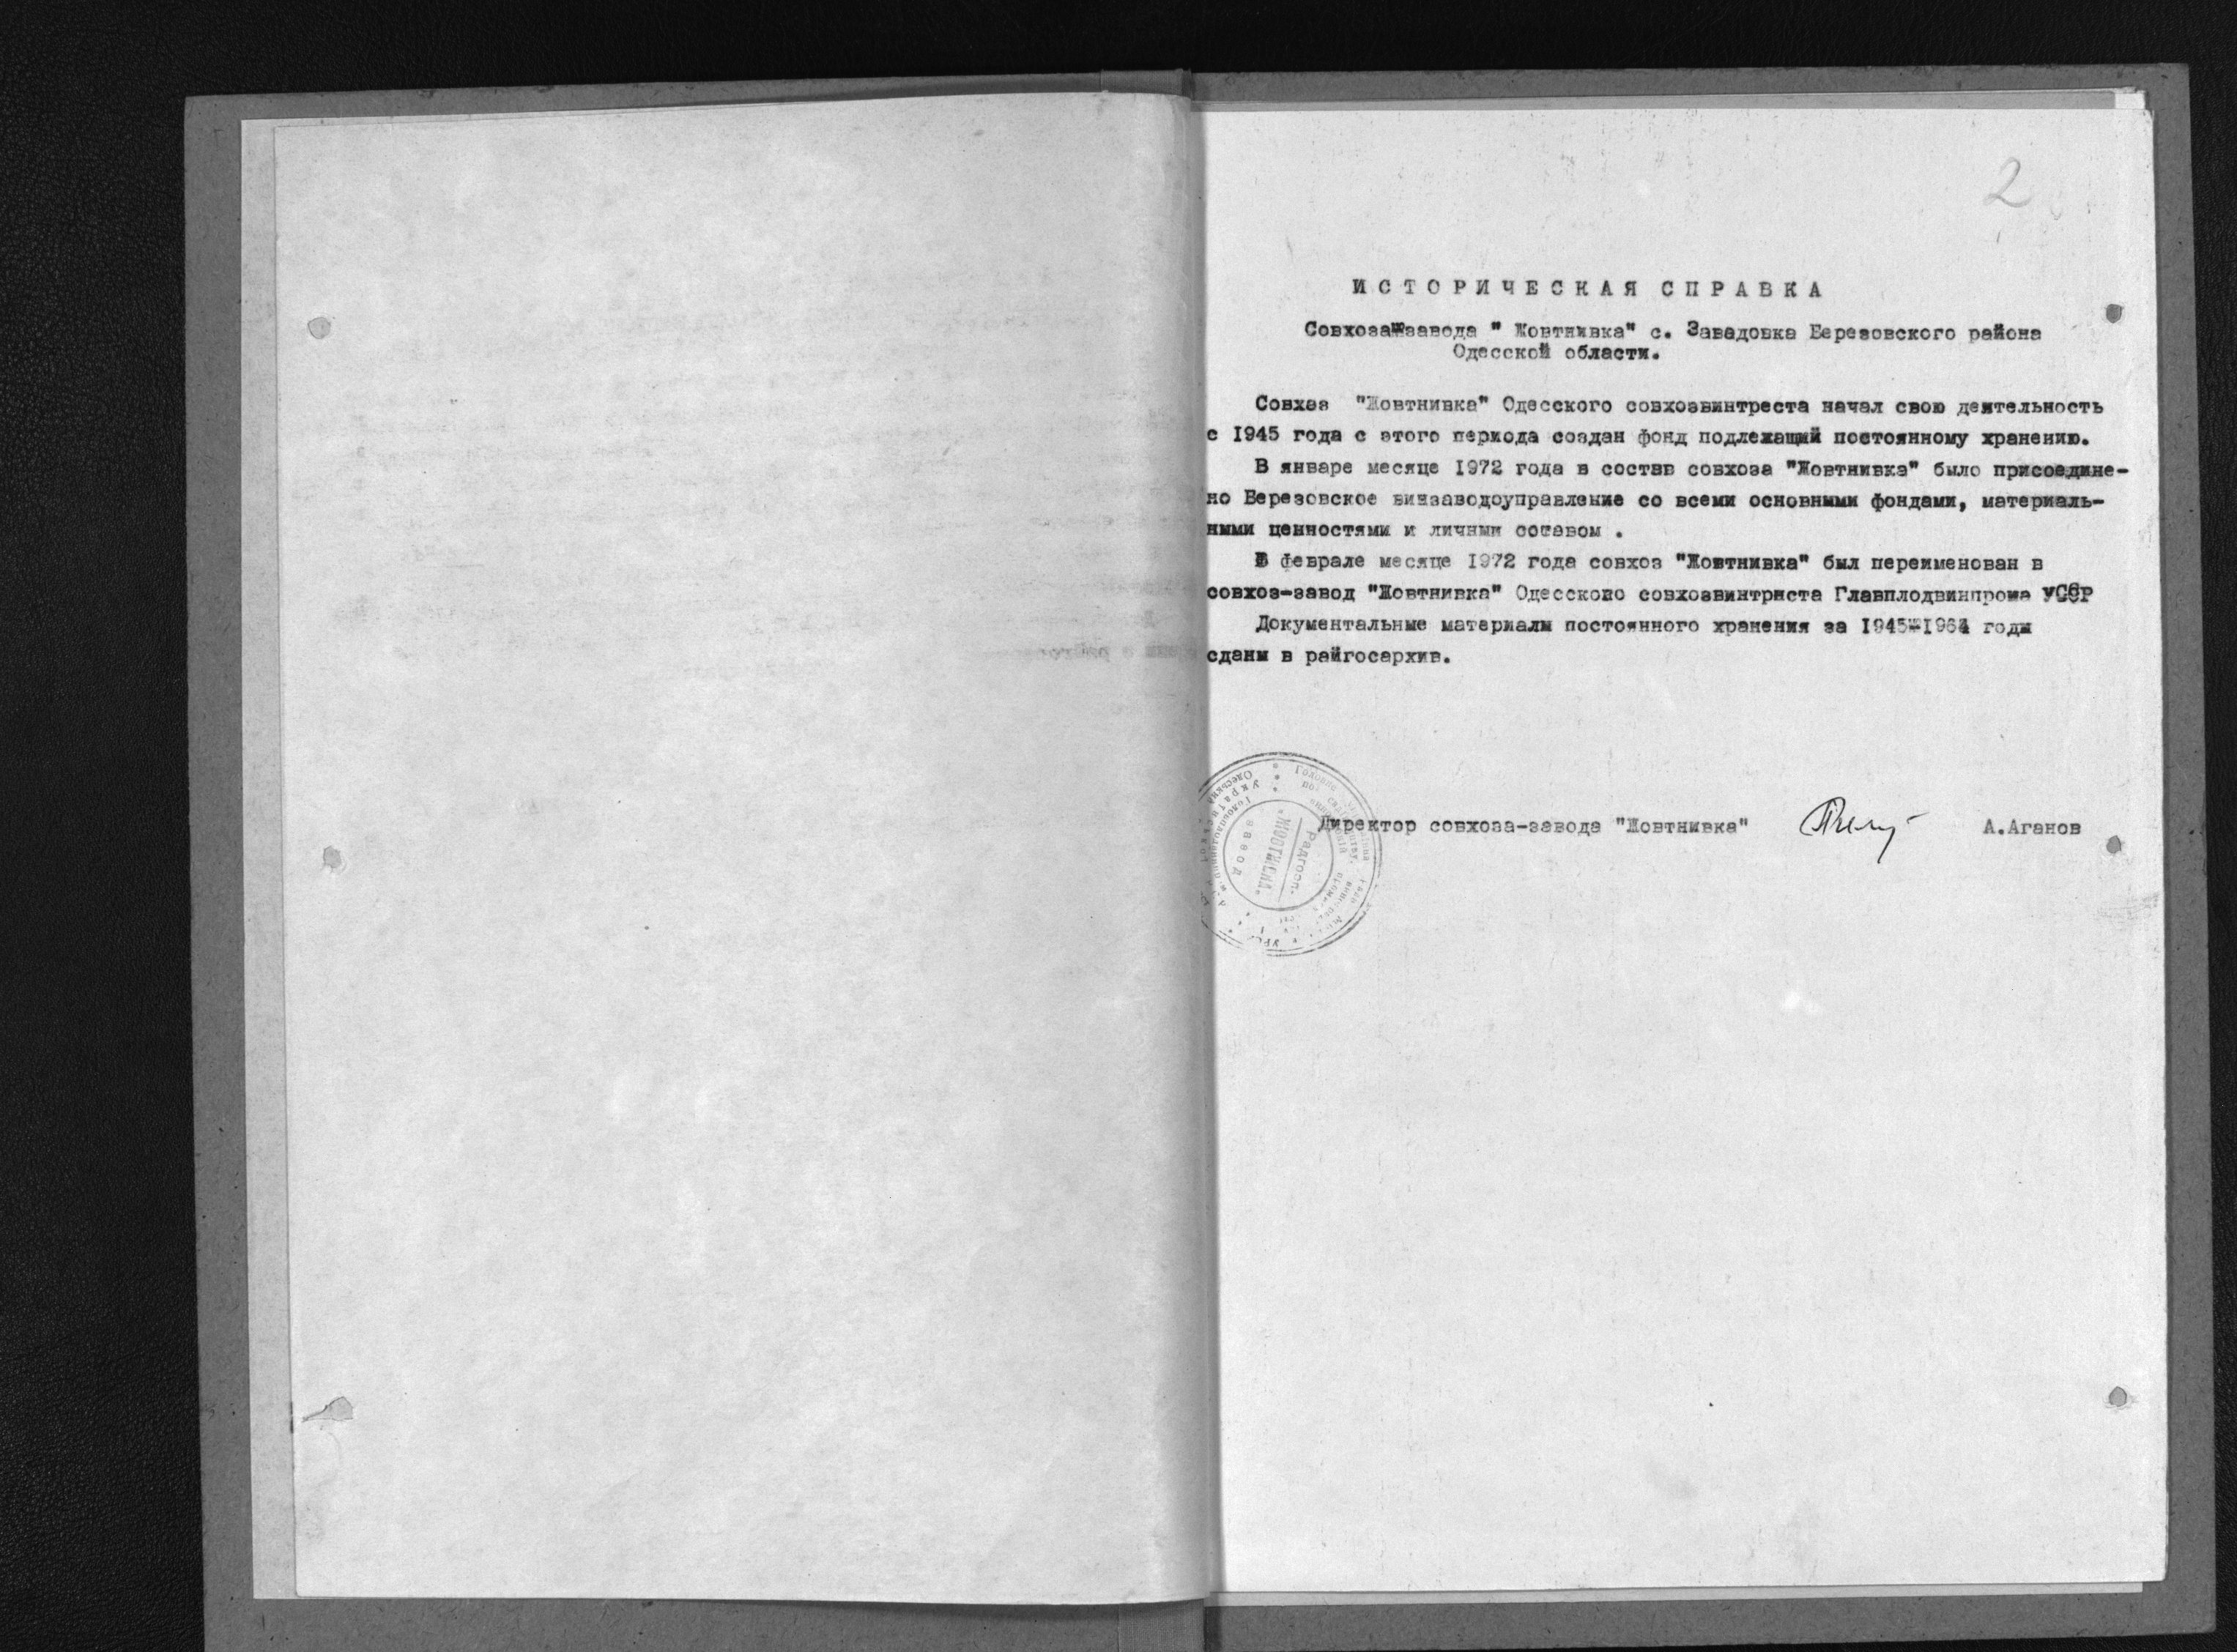 2
ИСТОРИЧЕСКАЯ СПРАВКА
Совхоза-завода " Жовтнивка" с. Завадовка Березовского района
Одесской области.
Совхоз "Жовтнивка" Одесского совхозвинтреста начал свою деятельность
с 1945 года с этого периода создан фонд подлежащий постоянному хранению.
В январе месяце 1972 года в состав совхоза "Жовтнивка" было присоедине-
но Березовское винзаводоуправление со всеми основными фондами, материаль-
ными ценностями и личным составом .
В феврале месяце 1972 года совхоз "Жовтнивка" был переименован в
совхоз-завод "Жовтнивка" Одесского совхозвинтриста Главплодвинпрома УССР
Документальные материалы постоянного хранения за 1945-1964 годы
сданы в райгосархив.
Директор совхоза-завода "Жовтнивка" А.Аганов
Радгосп-
завод